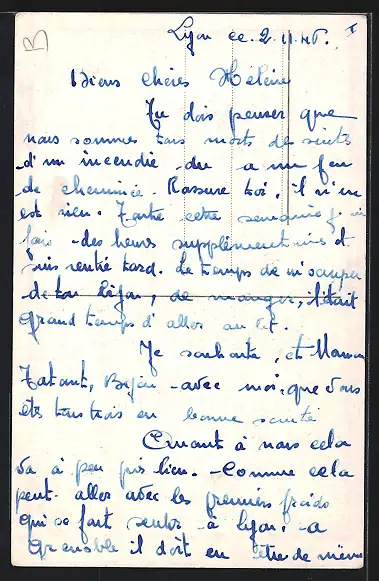 B
Lyon ce. 2. 11. 45. I
Biens chères Hélène
Tu dois penser que
nous sommes tous morts de suite
d'un incendie du a un feu
de cheminée. Rassure toi, il n'en
est rien. Toute cette semaine j'ai
fais des heures supplémentaires et
suis rentré tard. Le temps de m'occuper
de ton Léfou, de manger, l'était
grand temps d'aller au lit.
Je souhaite, et Maman
Tatant, Bijou avec moi, que vous
ete tous trois en bonne santé
Quant à nous cela
va à peu pres bien. Comme cela
peut aller avec les premiers froids
qui se font sentir à Lyon. a
Grenoble il doit en être de même